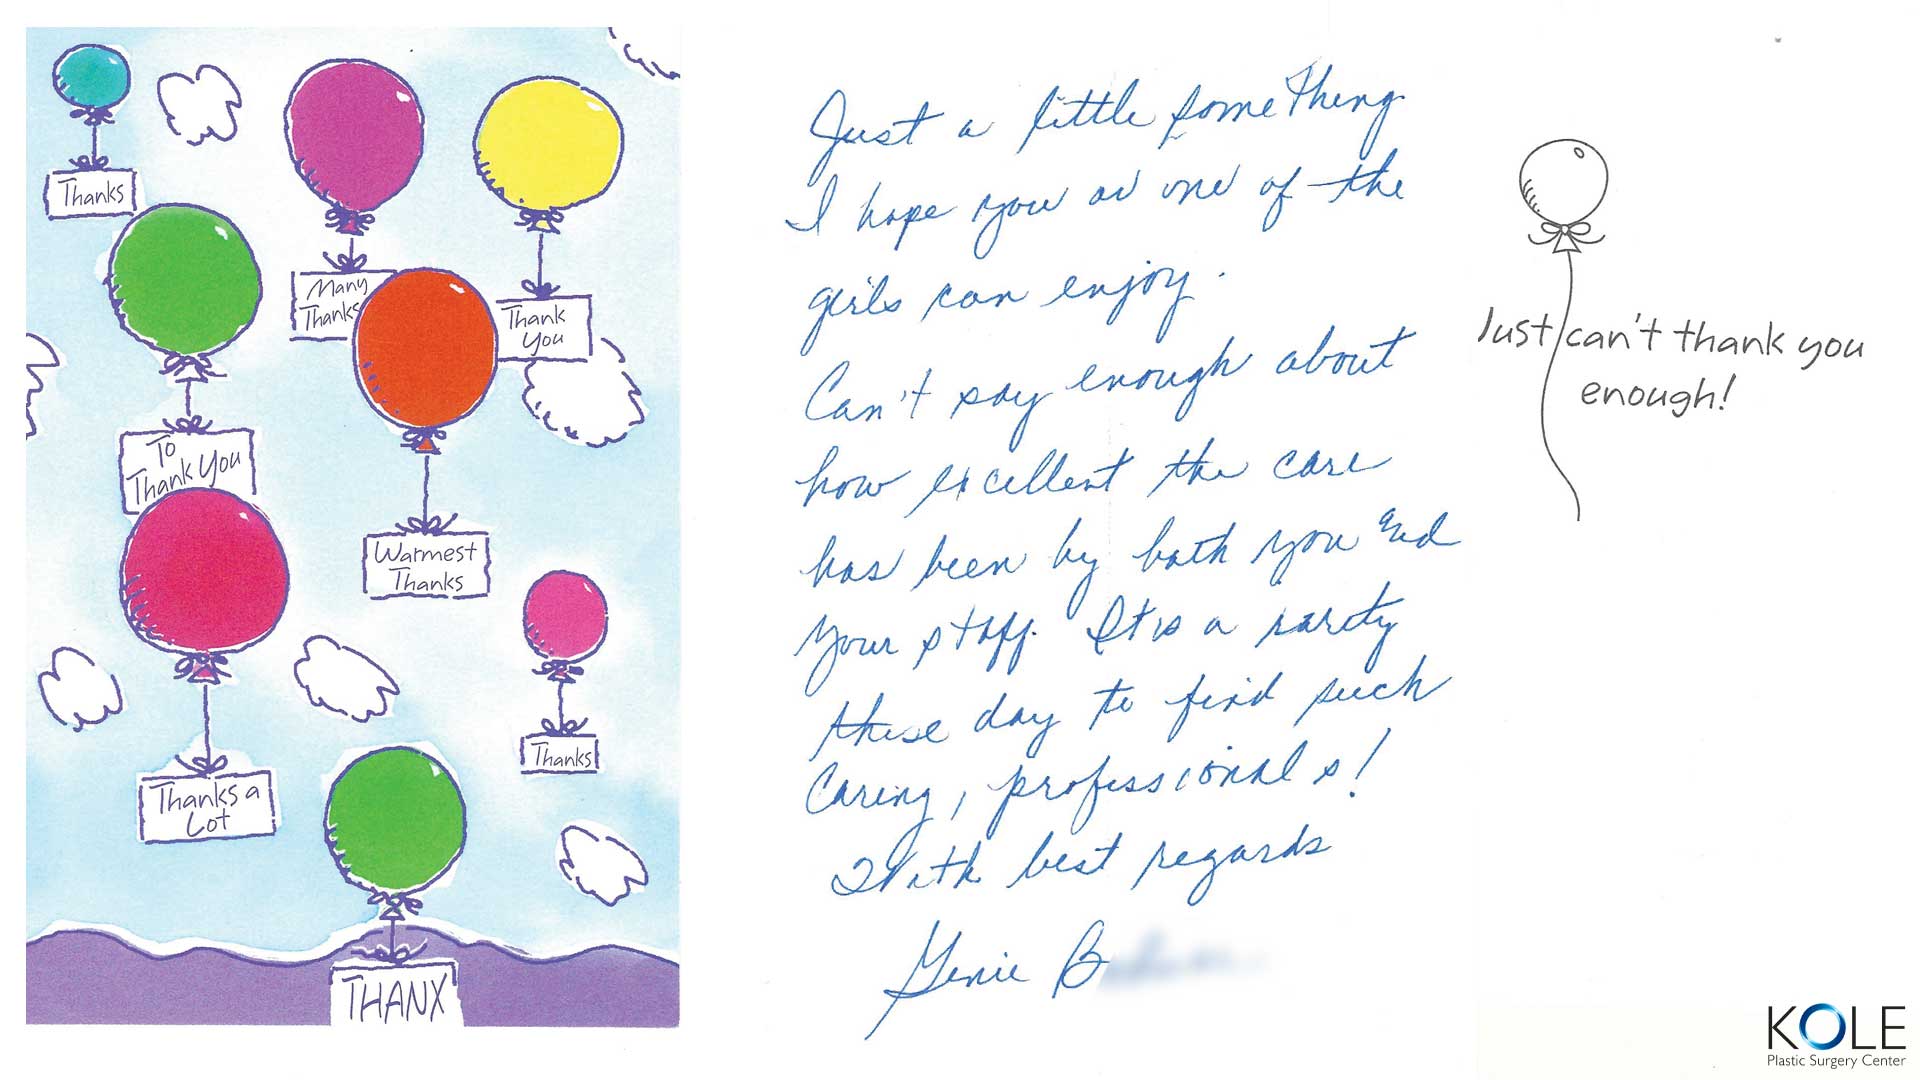 Thanks
Many
Thanks
Thank
You
To
Thank You
Warmest
Thanks
Thanks
Thanks a
Lot
THANX
Just a little something
I hope you or one of the
girls can enjoy.
Can't say enough about
how excellent the care
has been by both you and
your staff. It is a rarity
these day to find such
caring, professionals!
With best regards
Genie B
Just can't thank you
enough!
KOLE
Plastic Surgery Center